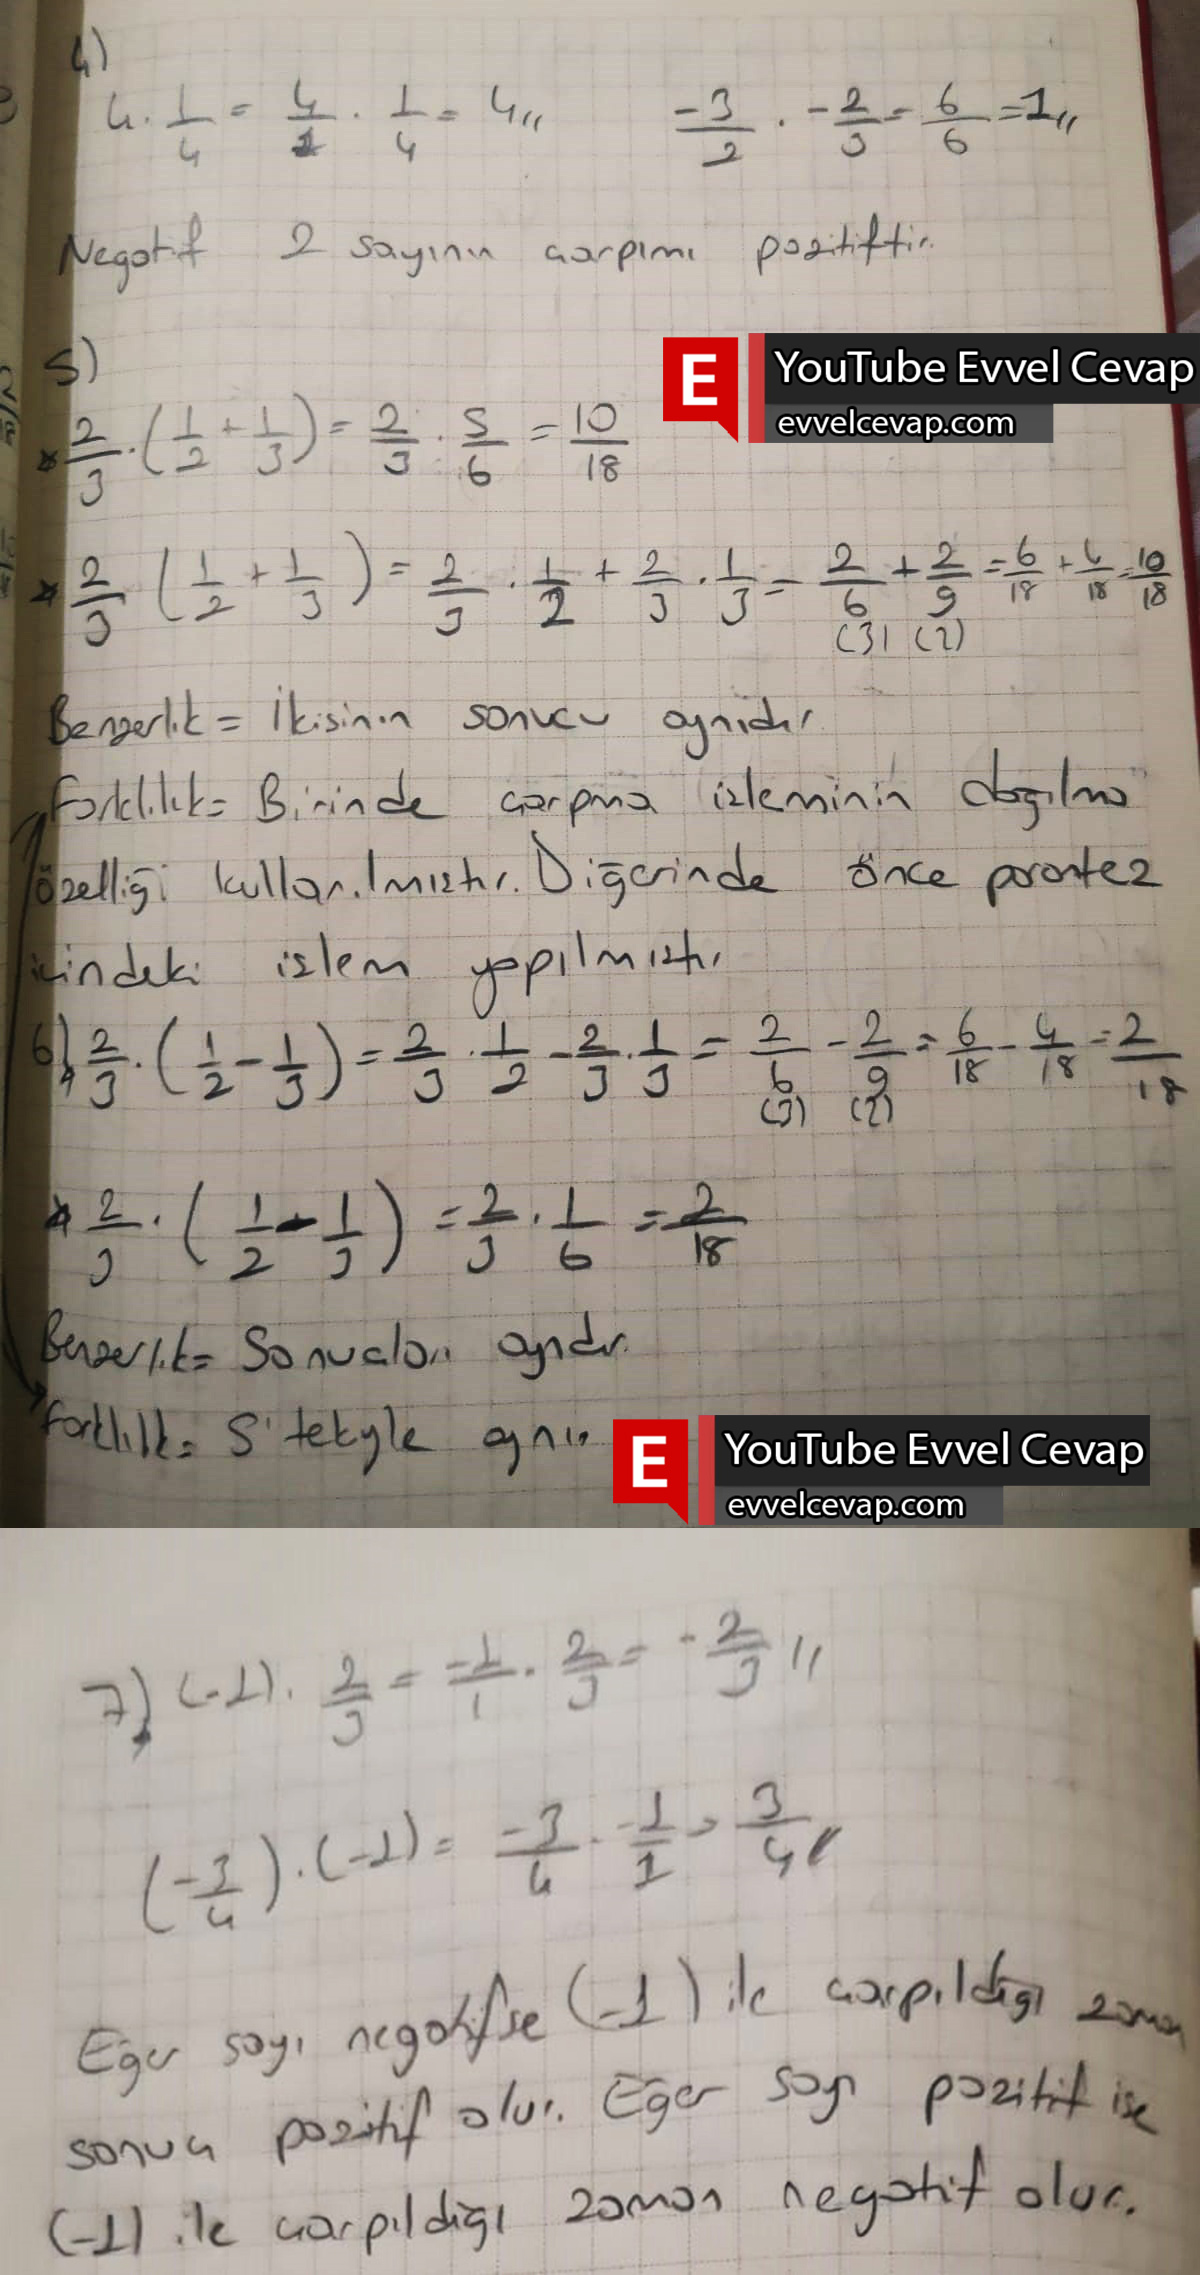 4)
4 · 1/4 = 4/1 · 1/4 = 4,,    -3/2 · -2/3 = 6/6 = 1,,
Negatif 2 sayının çarpımı pozitiftir.
5)
YouTube Evvel Cevap
evvelcevap.com
* 2/3 · (1/2 + 1/3) = 2/3 · 5/6 = 10/18
* 2/3 (1/2 + 1/3) = 2/3 · 1/2 + 2/3 · 1/3 = 2/6 + 2/9 = 6/18 + 4/18 = 10/18
(3) (2)
Benzerlik = İkisinin sonucu aynıdır.
Farklılık = Birinde çarpma işleminin dağılma
özelliği kullanılmıştır. Diğerinde önce parantez
içindeki işlem yapılmıştır
6) * 2/3 · (1/2 - 1/3) = 2/3 · 1/2 - 2/3 · 1/3 = 2/6 - 2/9 = 6/18 - 4/18 = 2/18
(3) (2)
* 2/3 · (1/2 - 1/3) = 2/3 · 1/6 = 2/18
Benzerlik = Sonuçları aynıdır.
Farklılık = 5'tekyle aynı.
E YouTube Evvel Cevap
evvelcevap.com
7) (-1) · 2/3 = -1/1 · 2/3 = -2/3 ,,
(-3/4) · (-1) = -3/4 · -1/1 = 3/4,,
Eğer sayı negatifse (-1) ile çarpıldığı zaman
sonuç pozitif olur. Eğer sayı pozitif ise
(-1) ile çarpıldığı zaman negatif olur.